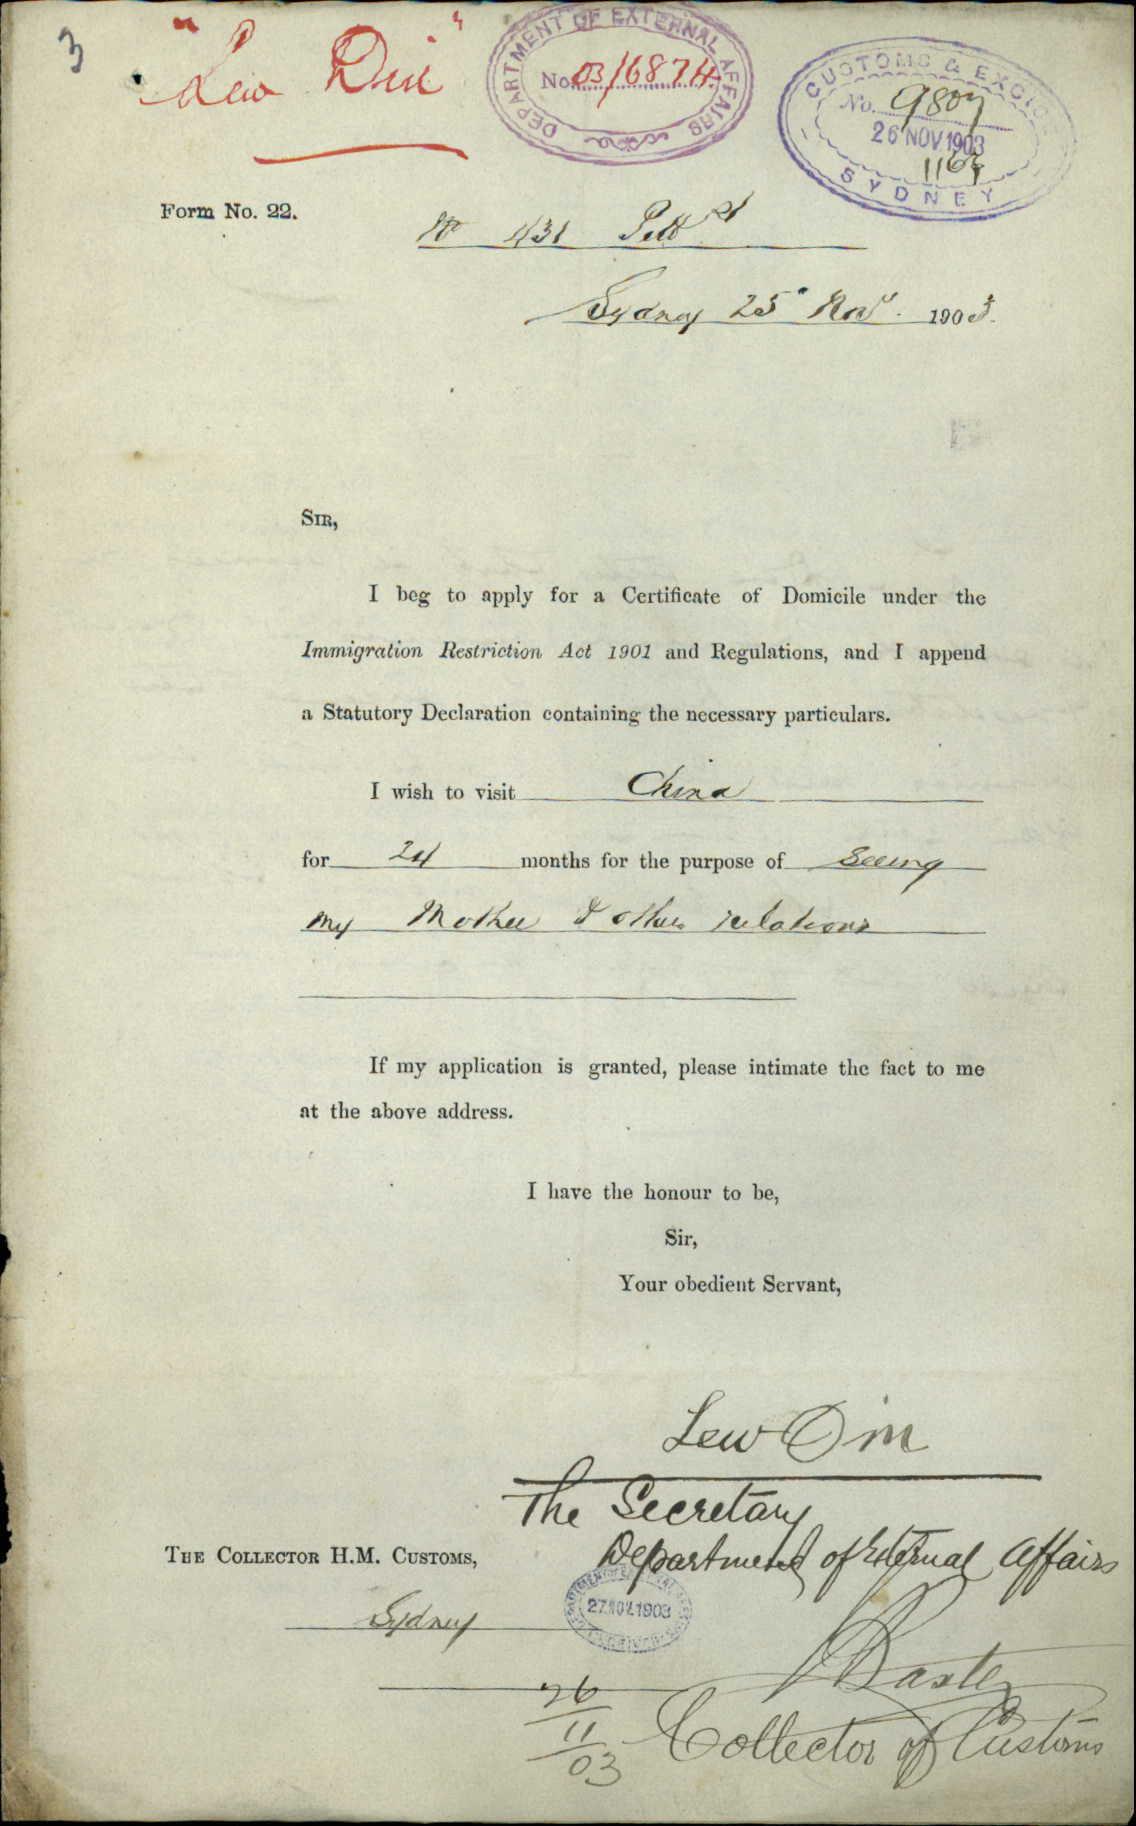 3
"Lew Din"
DEPARTMENT OF EXTERNAL AFFAIRS
No. 03/6874
CUSTOMS & EXCISE
No. 9807
26 NOV 1903
1163
SYDNEY
Form No. 22.
No 431 Pitt St
Sydney 25 Nov. 1903.
SIR,
I beg to apply for a Certificate of Domicile under the
Immigration Restriction Act 1901 and Regulations, and I append
a Statutory Declaration containing the necessary particulars.
I wish to visit China
for 24 months for the purpose of Seeing
my Mother & other relations
If my application is granted, please intimate the fact to me
at the above address.
I have the honour to be,
Sir,
Your obedient Servant,
Lew Din
The Secretary
Department of External Affairs
THE COLLECTOR H.M. CUSTOMS,
27 NOV 1903
Sydney
Baxter
26
11
03
Collector of Customs